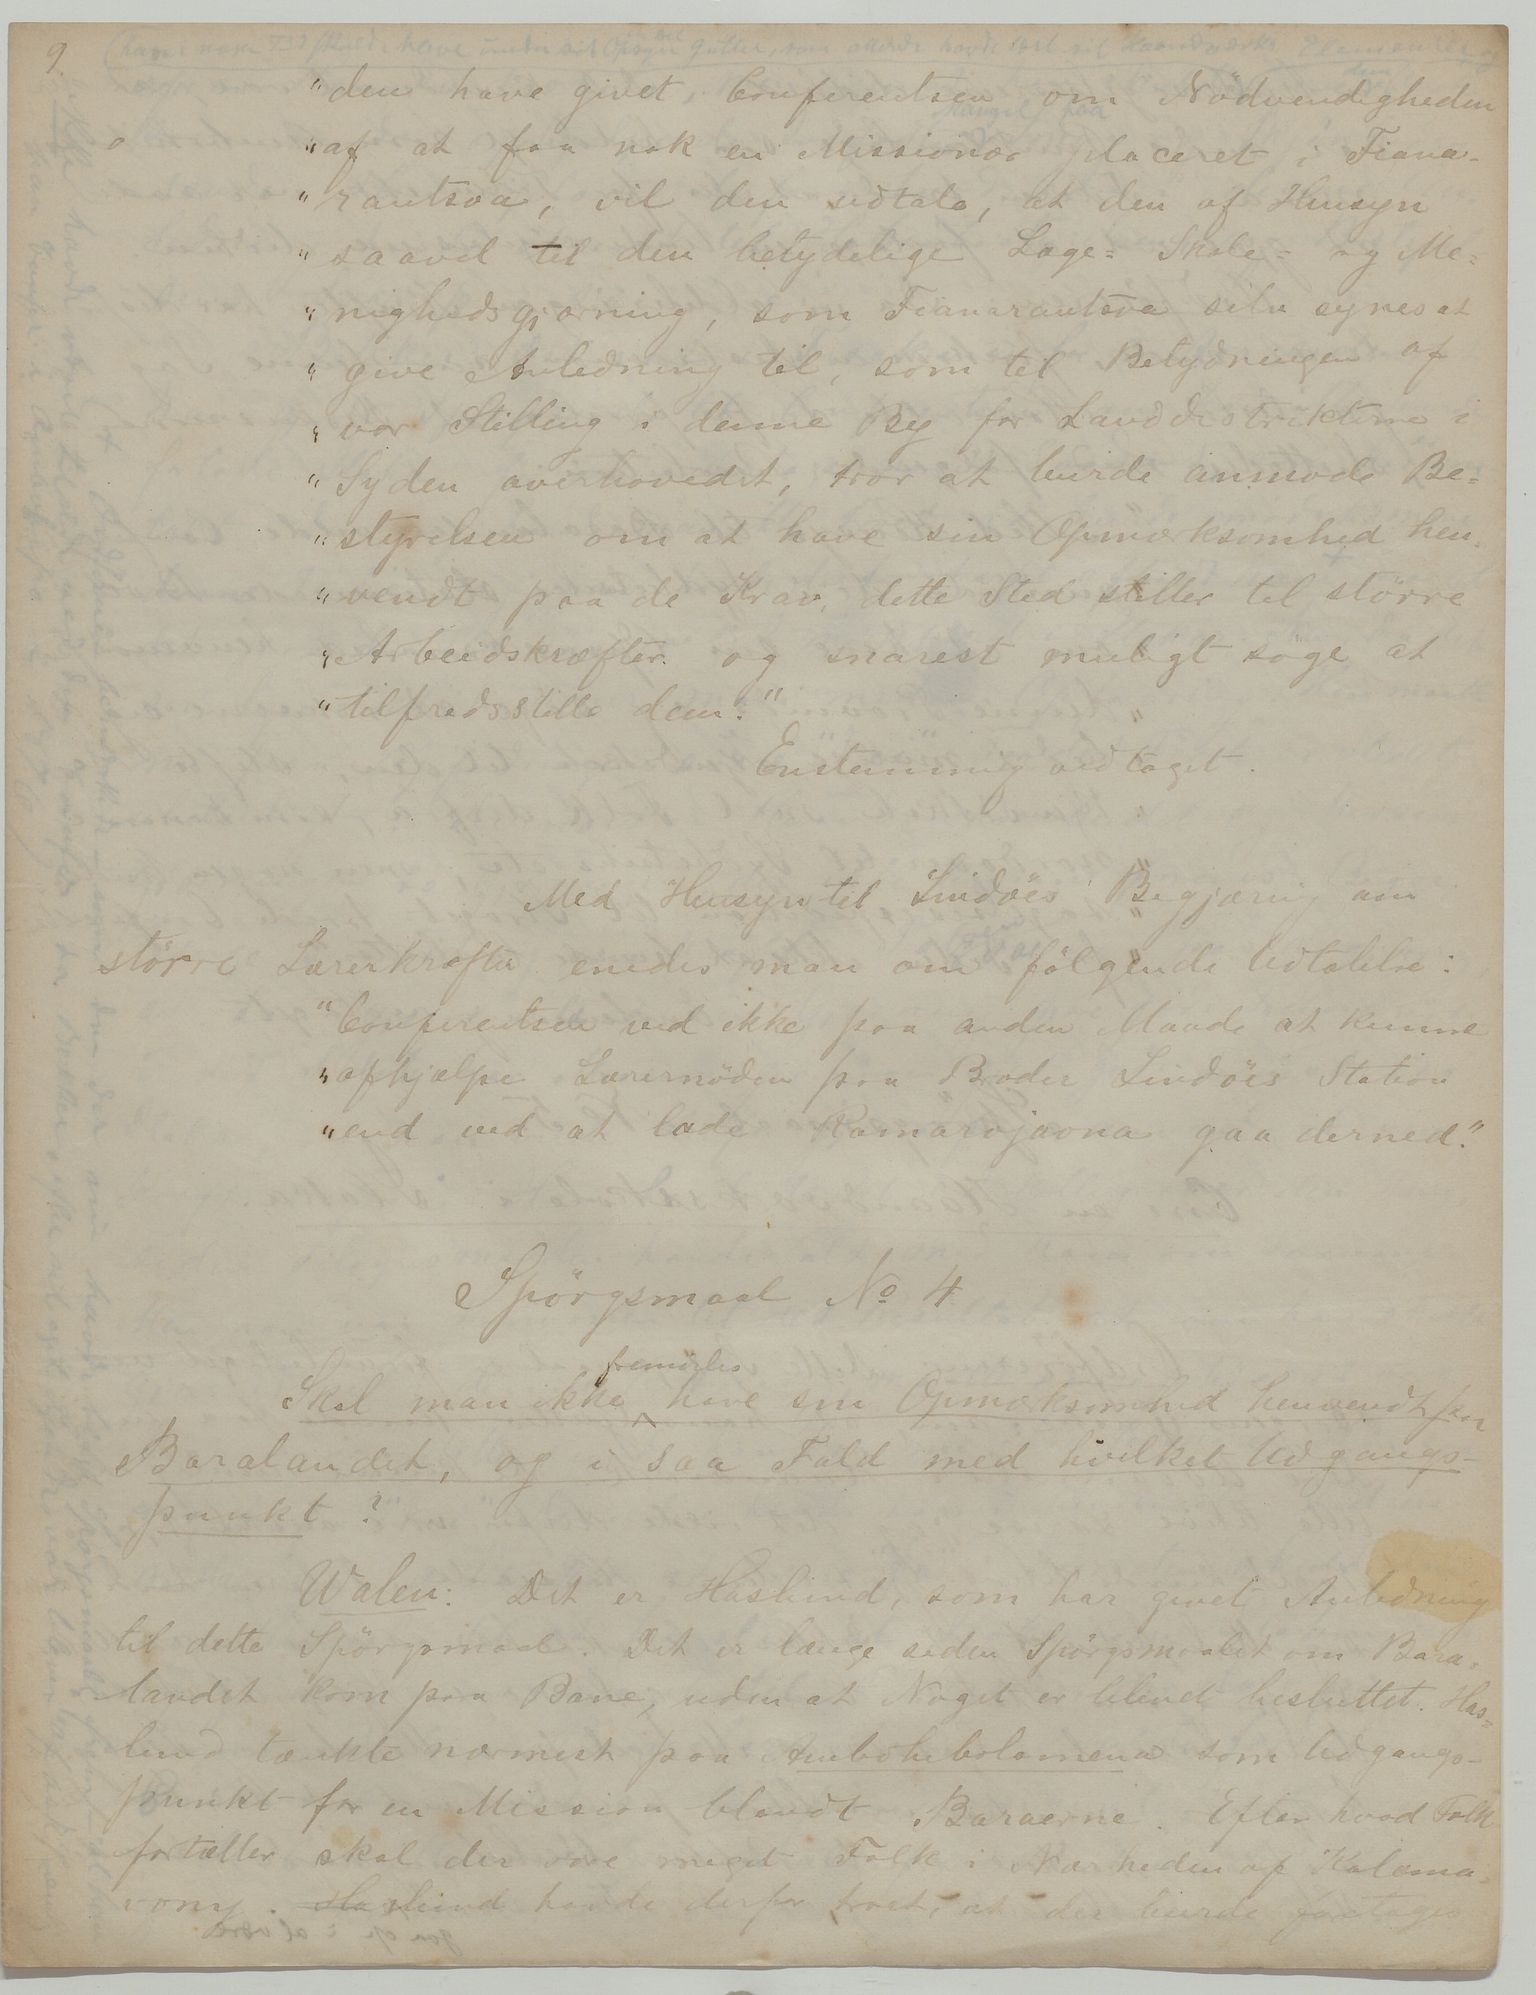 9.
"den have givet, Conferentsen om Nödvendigheden
"af at faa nok en Missionær placeret i Fiana-
"rantsoa, vil den udtale, at den af Hensyn
"saavel til den betydelige Læge- Skole- og Me-
"nighedsgjærning, som Fianarantsoa selv synes at
"give Anledning til, som til Betydningen af
"vor Stilling i denne By for Landdistrikterne i
"Syden overhovedet, tror at burde anmode Be-
"styrelsen om at have sin Opmærksomhed hen-
"vendt paa de Krav, dette Sted stiller til större
"Arbeidskræfter og snarest muligt söge at
"tilfredsstille dem."
Enstemmig vedtaget.
Med Hensyn til Lindöes Begjæring om
större Lærerkræfter enedes man om fölgende Udtalelse:
"Conferentsen ved ikke paa anden Maade at kunne
"afhjælpe Lærernöden paa Broder Lindöes Station
"end ved at lade Ramarojaona gaa derned."
Spörgsmaal No 4
fremdeles
Skal man ikke have sin Opmærksomhed henvendt paa
Baralandet, og i saa Fald med hvilket Udgangs-
punkt?
Walen: Det er Haslund, som har givet Anledning
til dette Spörgsmaal. Det er længe siden Spörgsmaalet om Bara-
landet kom paa Bane, uden at Noget er blevet besluttet. Has-
lund tænkte nærmest paa Ambohibolamena som Udgangs-
punkt for en Mission blandt Baraerne. Efter hvad Folk
fortæller skal der være meget Folk i Nærheden af Kalama-
vony. Haslund havde derfor troet, at der burde foretages